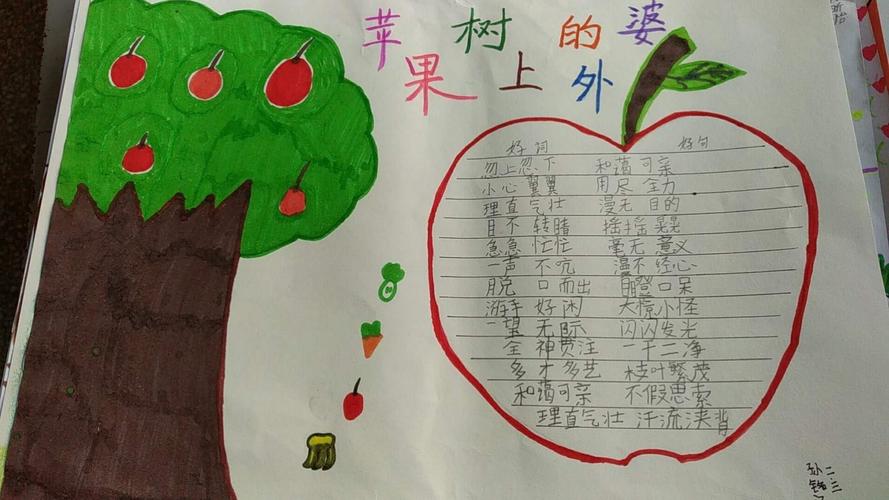 苹 树 的 婆
果 上 外
好词 好句
忽上忽下 和蔼可亲
小心翼翼 用尽全力
理直气壮 漫无目的
目不转睛 摇摇晃晃
急急忙忙 毫无意义
一声不吭 漫不经心
脱口而出 目瞪口呆
游手好闲 大惊小怪
一望无际 闪闪发光
全神贯注 一干二净
多才多艺 枝叶繁茂
和蔼可亲 不假思索
理直气壮 汗流浃背
孙 二.三